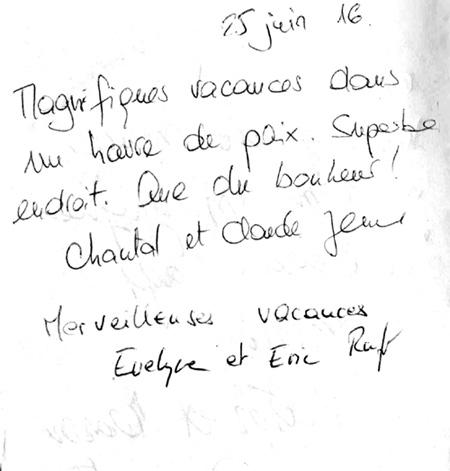 25 juin 16.
Magnifiques vacances dans
un havre de paix. Superbe
endroit. Que du bonheur!
Chantal et Claude
Merveilleuses vacances
Evelyne et Eric